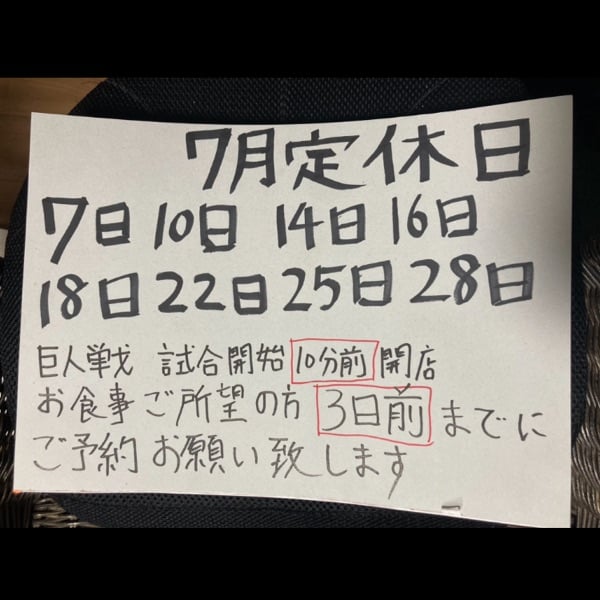 7月定休日
7日 10日 14日 16日
18日 22日 25日 28日
巨人戦 試合開始 10分前 開店
お食事ご所望の方 3日前 までに
ご予約お願い致します